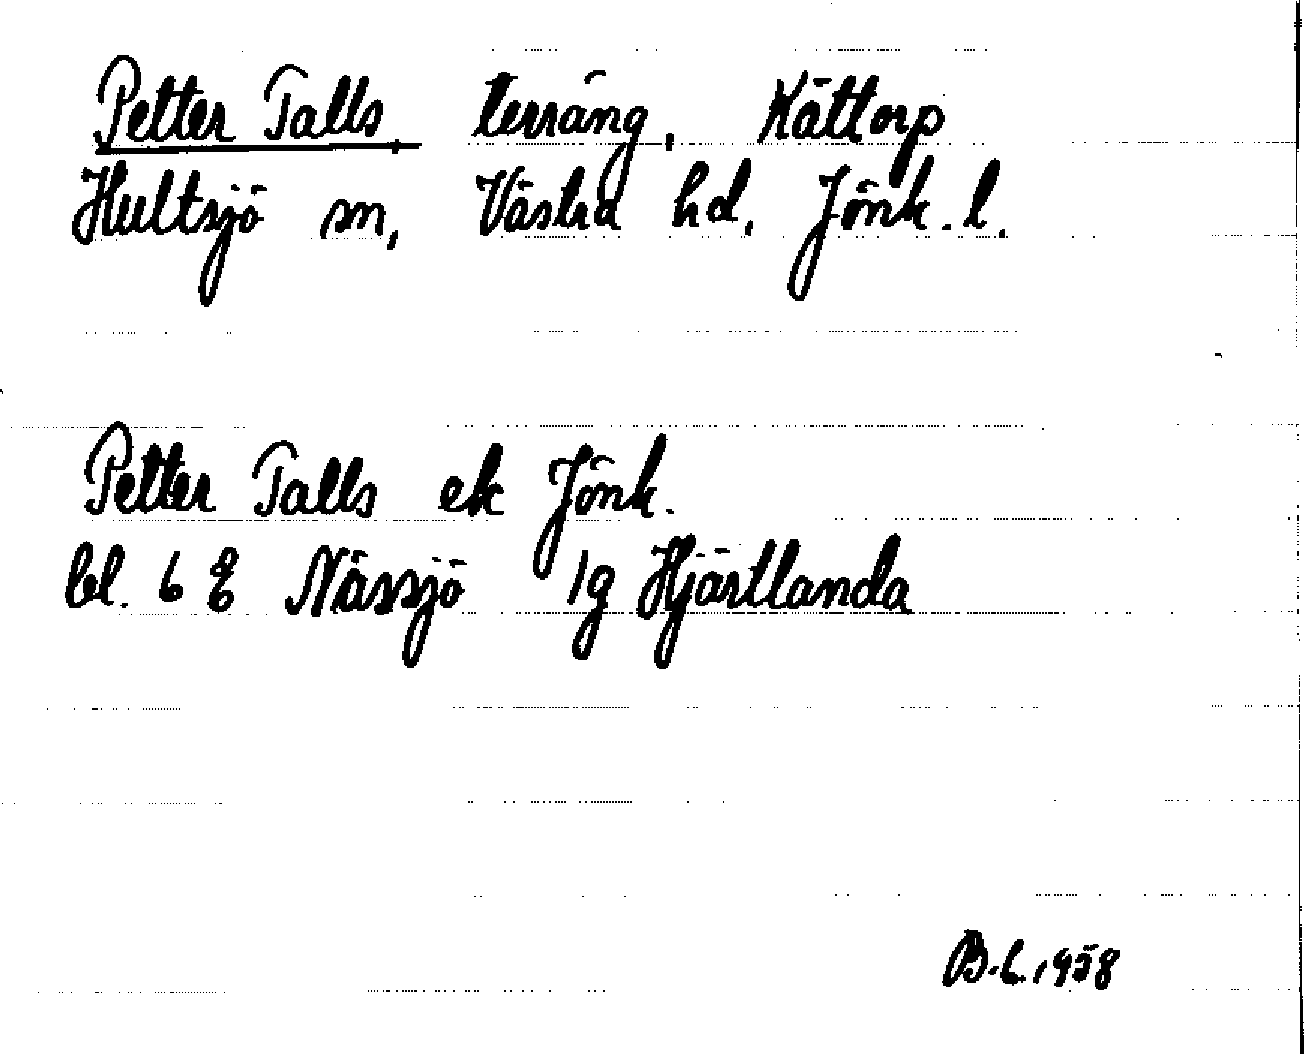 Petter Talls terräng, Kättorp
Hultsjö sn, Västra hd, Jönk. l.
Petter Talls ek Jönk.
bl. 6 E Nässjö 1g Hjärtlanda
B.L. 1958